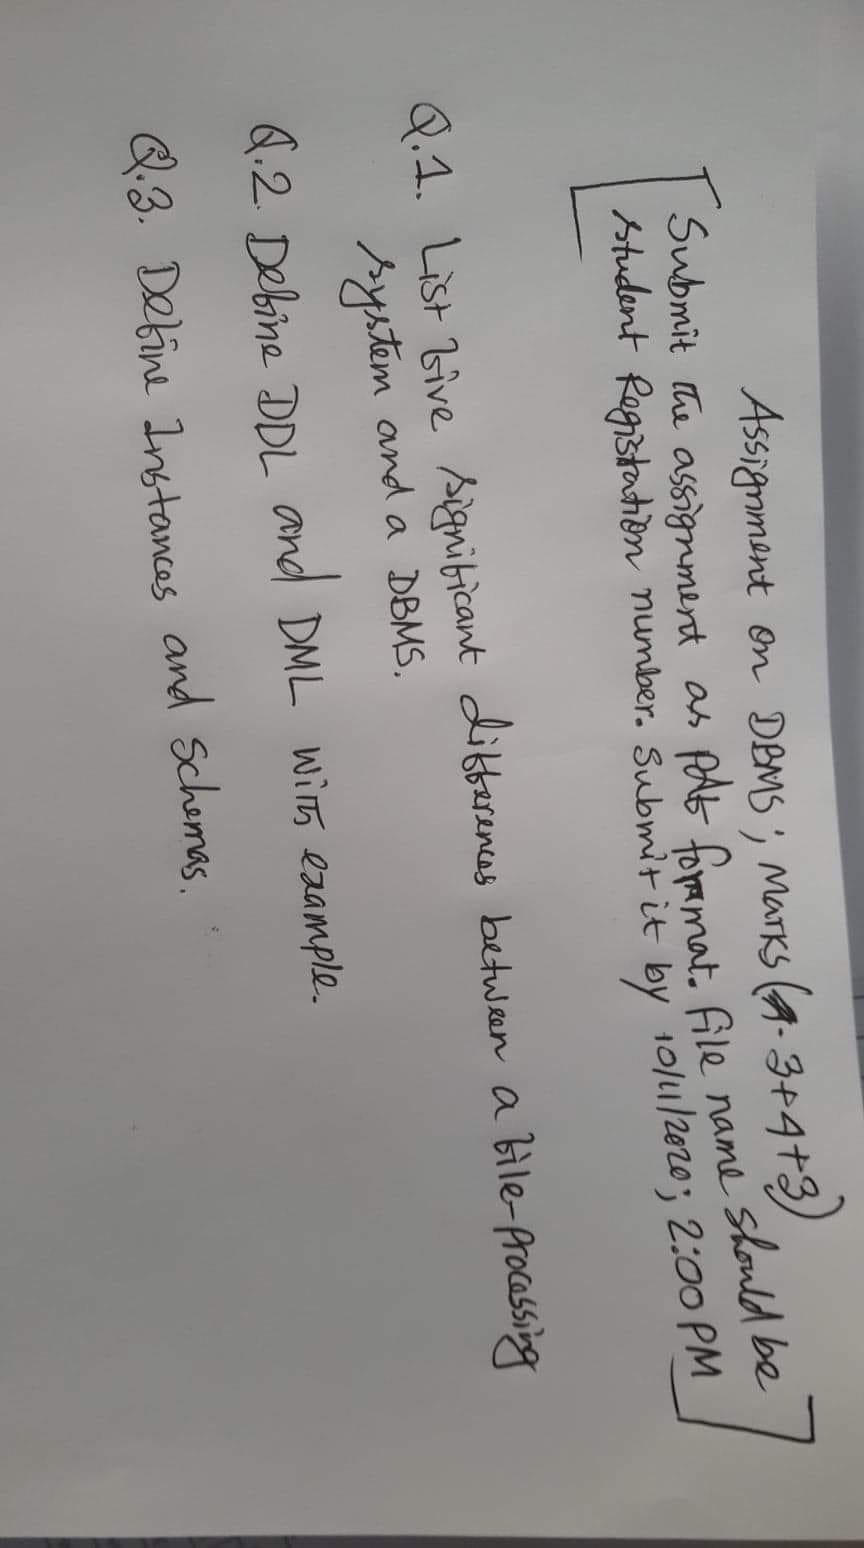 Assignment on DBMS; Marks (3+4+3)
Submit the assignment as pdf format. File name should be
student Registation number. Submit it by 10/11/2020; 2:00 PM
Q.1. List five significant differences between a file-processing
system and a DBMS.
Q.2. Define DDL and DML with example.
Q.3. Define Instances and Schemas.